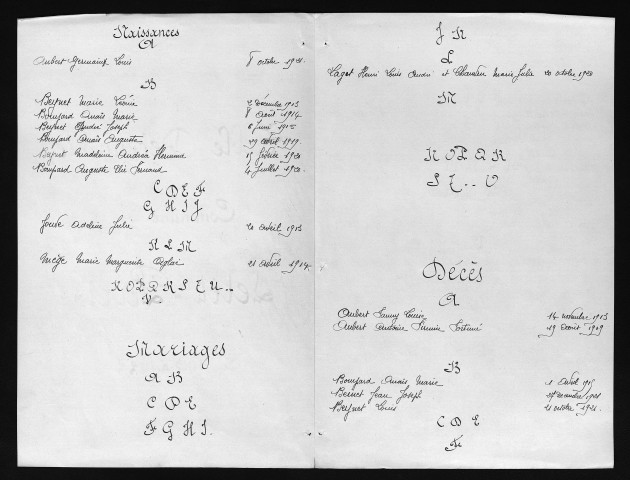 Naissances
A
Aubert Germaine Louis 8 octobre 1921.
B
Beynet Marie Léonie 2 Décembre 1913
Bompard Anaïs Marie 8 août 1914
Beynet André Joseph 6 Juin 1915
Bompard Anaïs Augusta 29 avril 1919.
Beynet Madeleine Andréa 15 février 1921
Bompard Auguste Elie Fernand 4 Juillet 1921.
C D E F
G H I J
Jouve Adeline Julie 20 avril 1913
K L M
Mège Marie Marguerite Aglaé 21 avril 1914
N O P Q R S T U..
V
Mariages
A B
C D E
F G H I.
J K
L
Laget Henri Louis André et Marie Julie 20 octobre 1920
M
N O P Q R
S T.. V
Décès
A
Aubert Fanny Louise 14 novembre 1913
Aubert Antoine Fortuné 19 août 1919
B
Bompard Anaïs Marie 1 avril 1915
Bernet Jean Joseph 1921
Beynet Louis 21 octobre 1921.
C D E
F